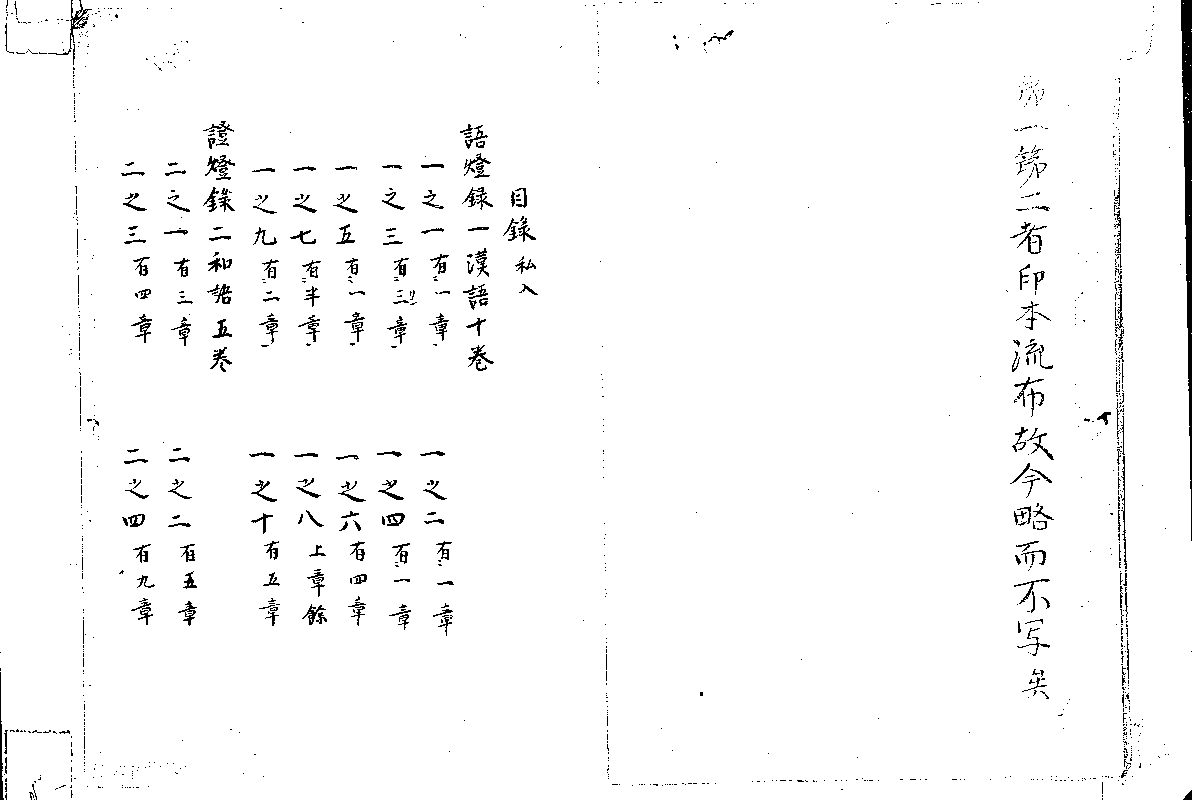 第一第二者印本流布故今略而不写矣
目錄 私入
語燈録一漢語十卷
一之一 有一章
一之二 有一章
一之三 有三章
一之四 有一章
一之五 有一章
一之六 有四章
一之七 有半章
一之八 上章餘
一之九 有二章
一之十 有五章
證燈錄二和語五卷
二之一 有三章
二之二 有五章
二之三 有四章
二之四 有九章